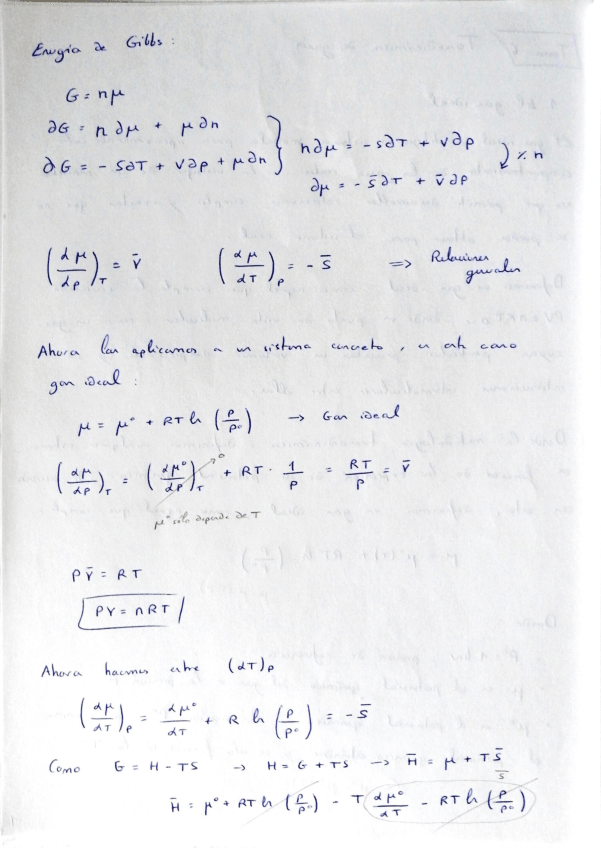 Energía de Gibbs:
G = nμ
∂G = n ∂μ + μ ∂n
∂G = - S∂T + V∂p + μ∂n
n∂μ = - S∂T + V∂p
∂μ = - s̄∂T + v̄∂p
% n
(∂μ/∂p)_T = V̄ (∂μ/∂T)_p = - S̄ ⇒ Relaciones generales
Ahora las aplicamos a un sistema concreto, en este caso
gas ideal:
μ = μ° + RT ln (P/P°) → Gas ideal
(∂μ/∂p)_T = (∂μ°/∂p)_T + RT · 1/P = RT/P = V̄
0
μ° sólo depende de T
P V̄ = RT
PV = nRT
Ahora hacemos esta (∂T)_P
(∂μ/∂T)_P = ∂μ°/∂T + R ln (P/P°) = - S̄
Como G = H - TS → H = G + TS → H̄ = μ + T S̄
H̄ = μ° + RT ln (P/P°) - T ∂μ°/∂T - RT ln (P/P°)
S̄